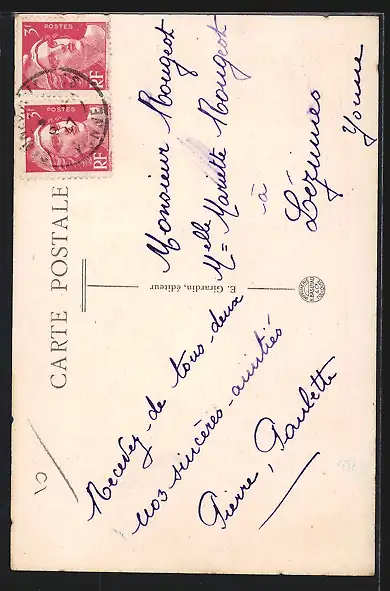 CARTE POSTALE
Recevez-de tous-deux
nos sincères-amitiés
Pierre, Paulette
E. Girardin, éditeur
Monsieur Rougeot
Melle Mariette Rougeot
à
Lézinnes
Yonne
3F
POSTES
RF
3F
POSTES
RF